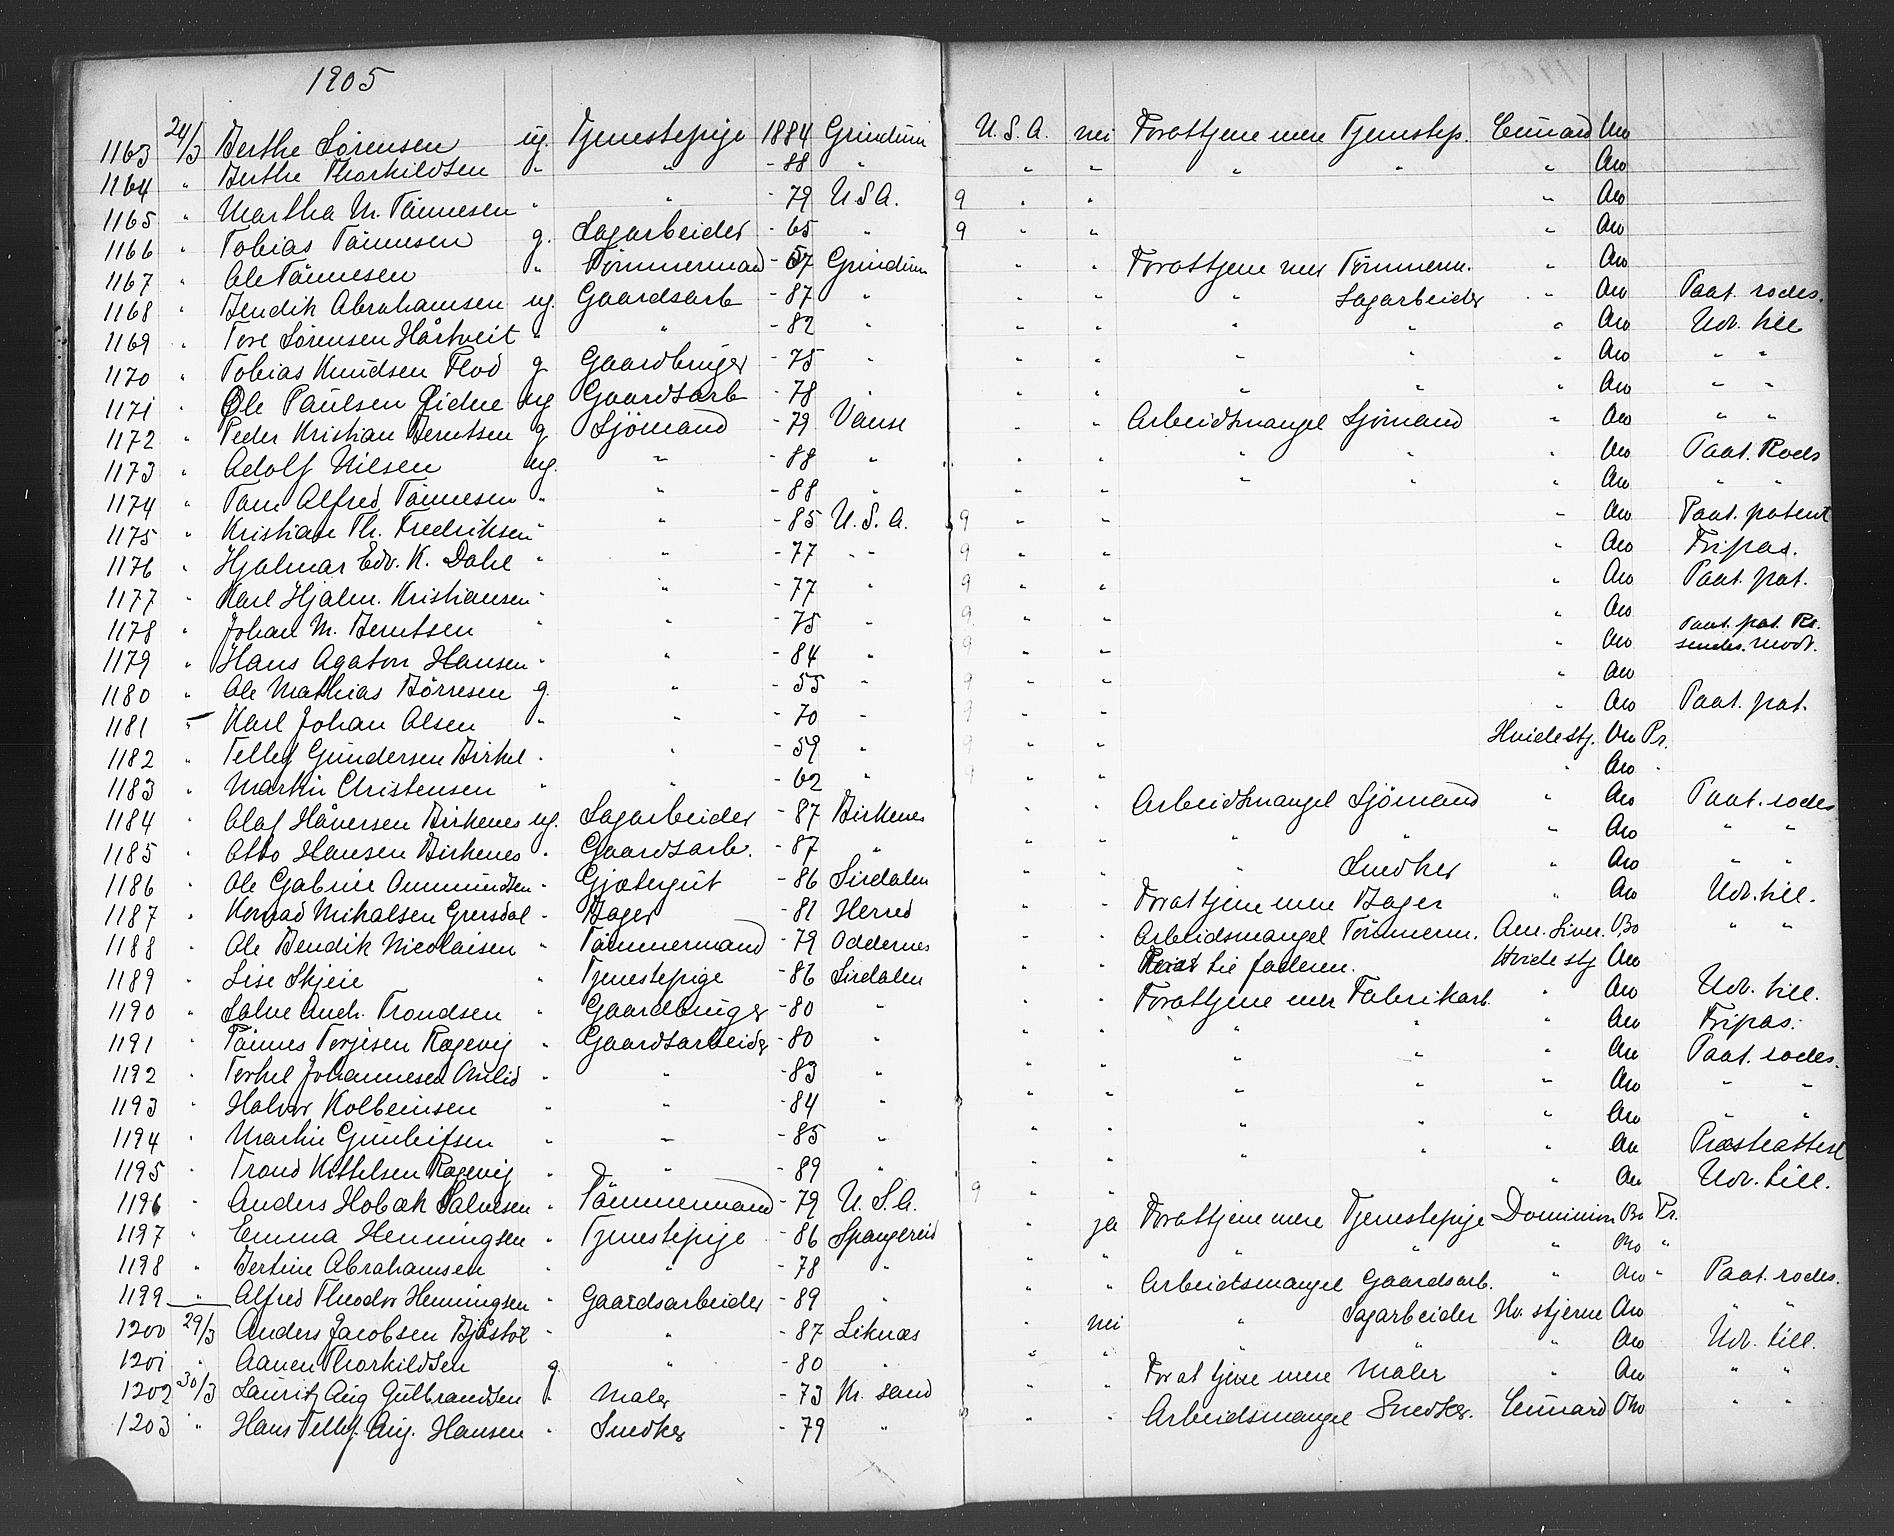 1905
1163 24/3 Berthe Sörensen ug. Tjenestepige 1884 Grindum U.S.A. nei Forattjene mere Tjenstep. Cunard Aro
1164 " Berthe Thorkildsen " " - 88 " " " " " " Aro
1165 " Martha M. Tönnesen " " - 79 U.S.A. 9 " " " Aro
1166 " Tobias Tönnesen g. Sagarbeider - 65 " 9 " " " Aro
1167 " Ole Tönnesen " Tömmermand - 57 Grindum " " Forattjene mer Tömmerm. " Aro
1168 " Bendik Abrahamsen ug. Gaardsarb - 87 " " " " Sagarbeider " Aro Paat. rodes.
1169 " Tore Sörensen Hårtveit " " - 82 " " " " " " Aro Udv. till
1170 " Tobias Knudsen Flod g Gaardbruger - 75 " " " " " " Aro " "
1171 " Ole Paulsen Eidne ug Gaardsarb - 78 " " " " " " Aro
1172 " Peder Kristian Berntsen g Sjömand - 79 Vanse " " Arbeidsmangel Sjömand " Aro " "
1173 " Adolf Nilsen ug. " - 88 " " " " " " Aro Paat. Rods
1174 " Tom Alfred Tönnesen " " - 88 " " " " " Aro " "
1175 " Kristian Th. Fredriksen " " - 85 U.S.A. 9 " " " Aro Paat. patent
1176 " Hjalmar Edv. K. Dahl " " - 77 " " 9 " " " Aro Fripas.
1177 " Karl Hjalm. Kristiansen " " - 77 " 9 " " " Aro Paat. pat.
1178 " Johan M. Berntsen " " - 75 " 9 " " " Aro
1179 " Hans Agaton Hansen " " - 84 " 9 " " Aro Paat. pat. Rr. sendes. modt.
1180 " Ole Mathias Börresen g. " - 55 " 9 " " " Aro
1181 " Karl Johan Olsen " " - 70 " 9 " " " Aro Paat. pat.
1182 " Tellef Gundersen Birkel " " - 59 " 9 " " Hvidestj. Aro Pr.
1183 " Martin Christensen " " - 62 " 9 " " " Aro "
1184 " Olaf Håversen Birkenes ug. Sagarbeider - 87 Birkenes " " Arbeidsmangel Sjömand " Aro Paat. rodes
1185 " Otto Hansen Birkenes " Gaardsarb. - 87 " " " " " " Aro " "
1186 " Ole Gabriel Ommundsen " Gjætergut - 86 Sirdalen " " " Snedker " Aro " "
1187 " Konrad Mikalsen Gyrsdal " Bager - 81 Herred " " Forattjene mere Bager " Aro Udv. till.
1188 " Ole Bendik Nicolaisen " Tömmermand - 79 Oddernes " " Arbeidsmangel Tömmerm. Am. Liver. Bo " "
1189 " Lise Skjeie " Tjenestepige - 86 Sirdalen " " Reist til faderen. Hvide stj Aro
1190 " Salve Andr. Trondsen " Gaardbruger - 80 " " " Forattjene mer Fabrikarb. " Aro Udv. till.
1191 " Tönnes Terjesen Ragevig " Gaardsarbeider - 80 " " " " " " Aro Fripas.
1192 " Torkel Johannesen Omlid " " - 83 " " " " " " Aro Paat. rodes.
1193 " Halvor Kolbeinsen " " - 84 " " " " " " Aro " "
1194 " Martin Gunleifsen " " - 85 " " " " " " Aro " "
1195 " Trond Kittelsen Ragevig " " - 89 " " " " " " Aro Præsteattest
1196 " Anders Hobæk Salvesen " Tömmermand - 79 U.S.A. 9 " " " Aro Udv. till.
1197 " Emma Henningsen " Tjenestepige - 86 Spangereid " ja Forattjene mere Tjenestepige Dominion Bo Pr.
1198 " Bertine Abrahamsen " " - 78 " " " " " " Aro "
1199 " Alfred Theodor Henningsen " Gaardsarbeider - 89 " " " Arbeidsmangel Gaardsarb. " Aro " Paat. rodes.
1200 29/3 Anders Jacobsen Bjåstöl " " - 87 Liknæs " nei " Sagarbeider Hv. stjerne Aro " "
1201 " Aanen Thorkildsen g " - 80 " " " " " " Aro Udv. till.
1202 30/3 Lauritz Aug Gulbrandsen " Maler - 73 Kr. sand " " For at tjene mere Maler " Aro " "
1203 " Hans Tellef. Aug. Hansen " Snedker - 79 " " " Arbeidsmangel Snedker. Cunard Oho " "